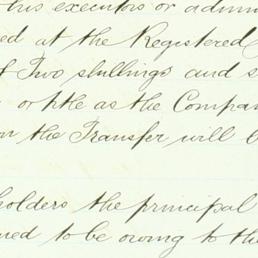 his executors or admin
ed at the Registered
f Two shillings and s
or title as the Compan
on the Transfer will b
holders the principal
ued to be owing to the